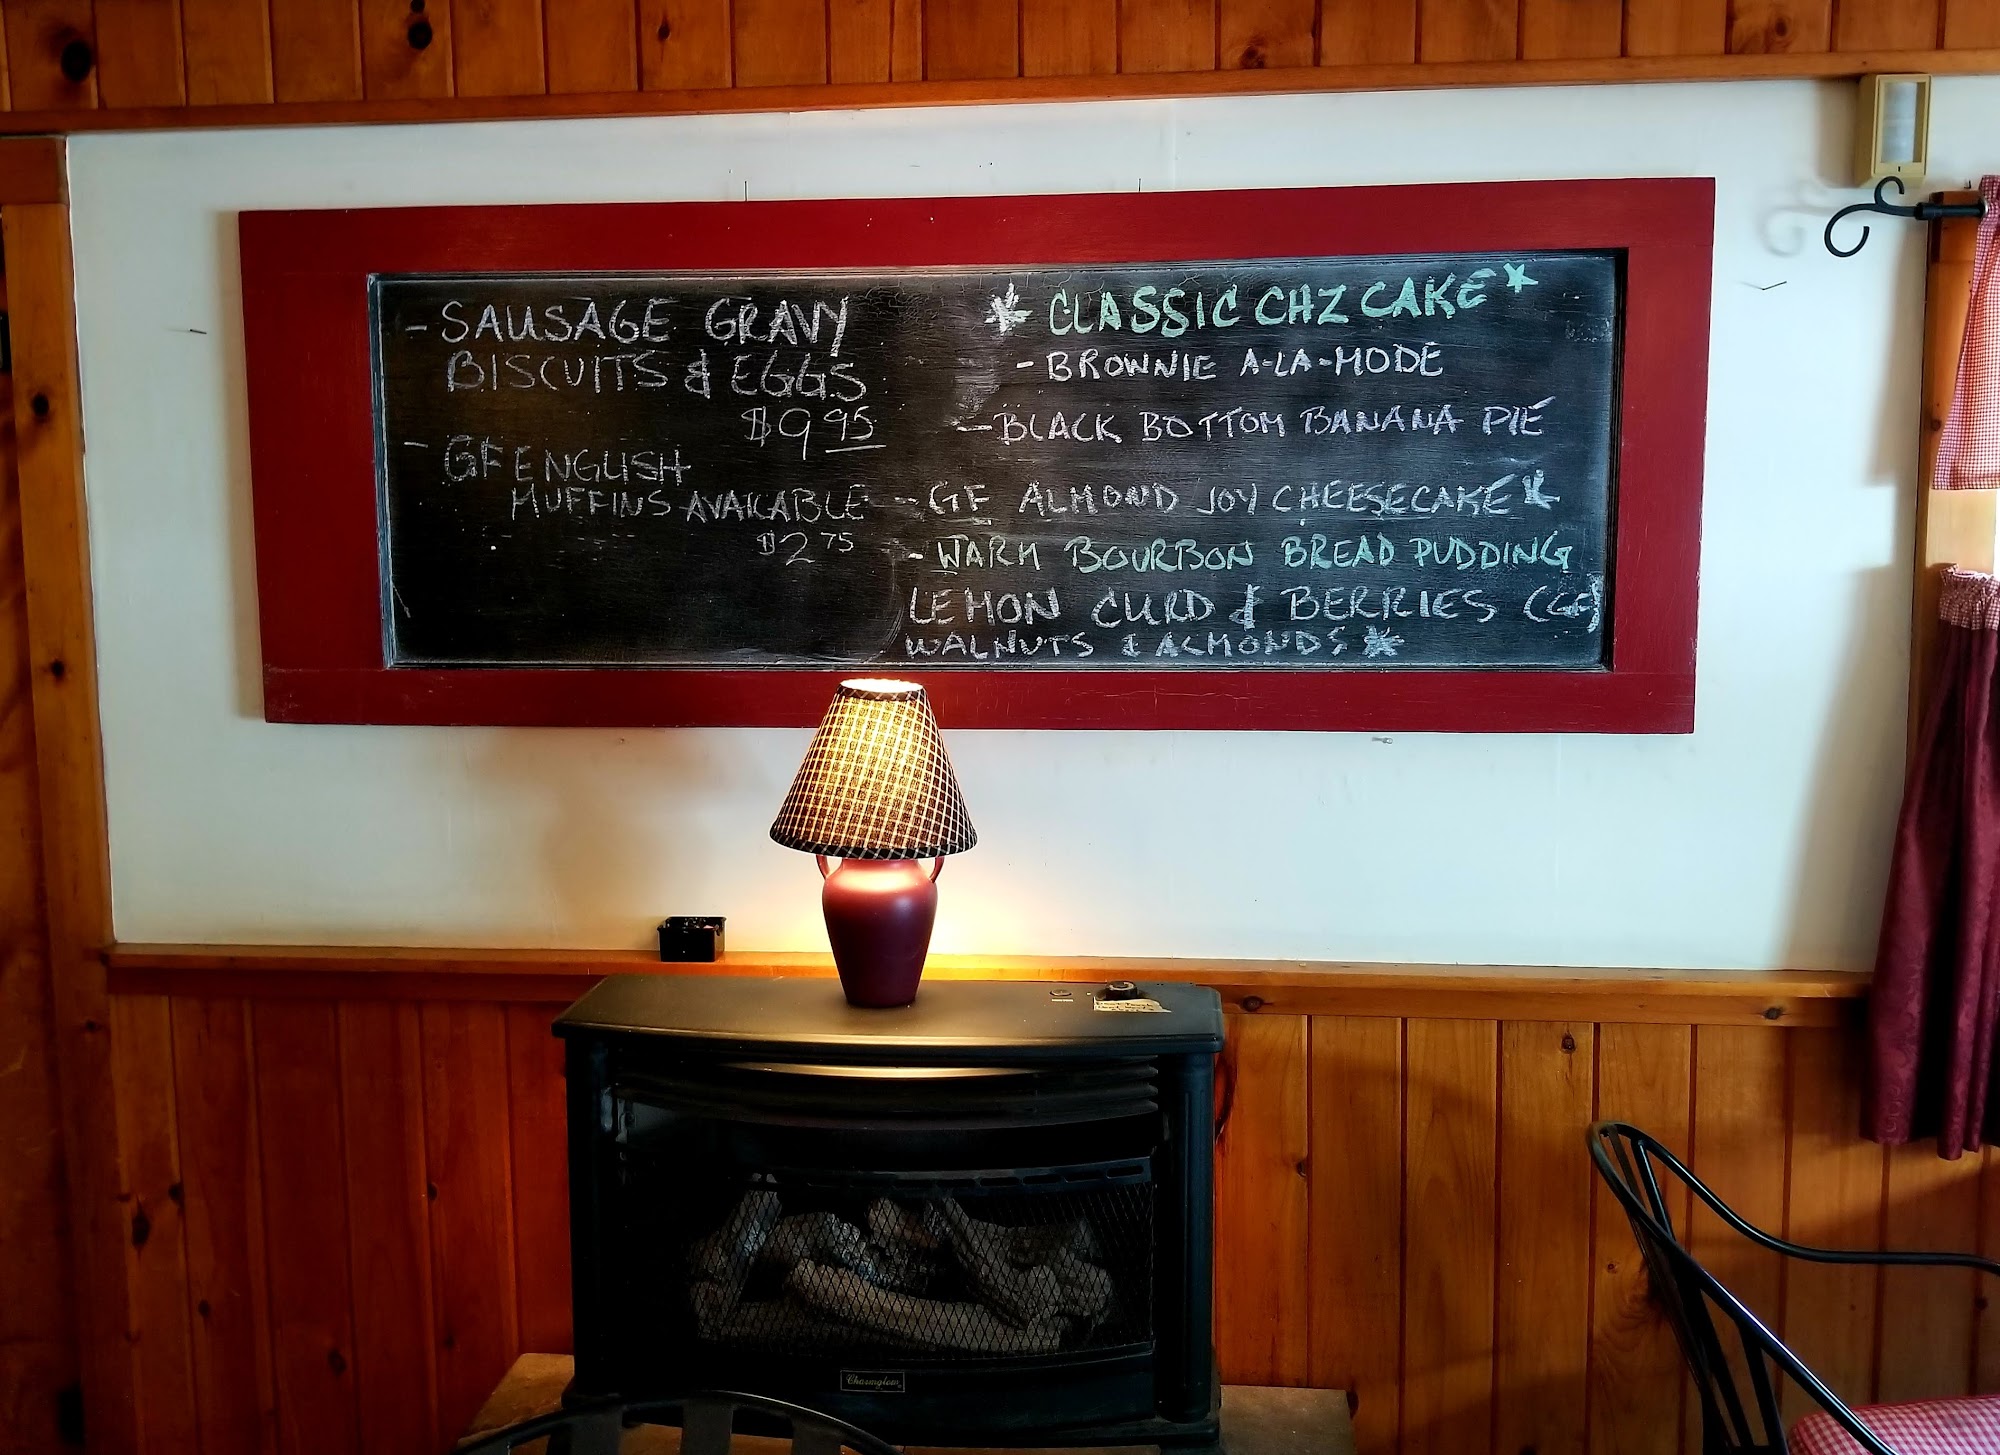 - SAUSAGE GRAVY
BISCUITS & EGGS
$9.95
- GF ENGLISH
MUFFINS AVAILABLE
$2.75
* CLASSIC CHZ CAKE *
- BROWNIE A-LA-MODE
- BLACK BOTTOM BANANA PIE
- GF ALMOND JOY CHEESECAKE *
- WARM BOURBON BREAD PUDDING
LEMON CURD & BERRIES (GF)
WALNUTS & ALMONDS *
Charmglow